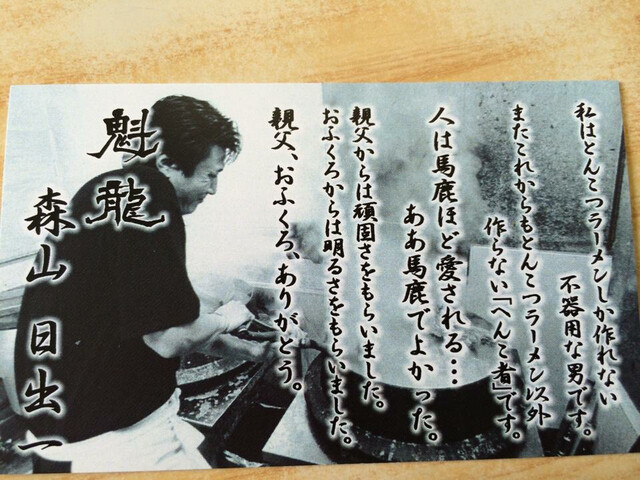 私はとんこつラーメンしか作れない
不器用な男です。
またこれからもとんこつラーメン以外
作らない「へんこ者」です。
人は馬鹿ほど愛される…
ああ馬鹿でよかった。
親父からは頑固さをもらいました。
おふくろからは明るさをもらいました。
親父、おふくろ、ありがとう。
魁龍
森山日出一